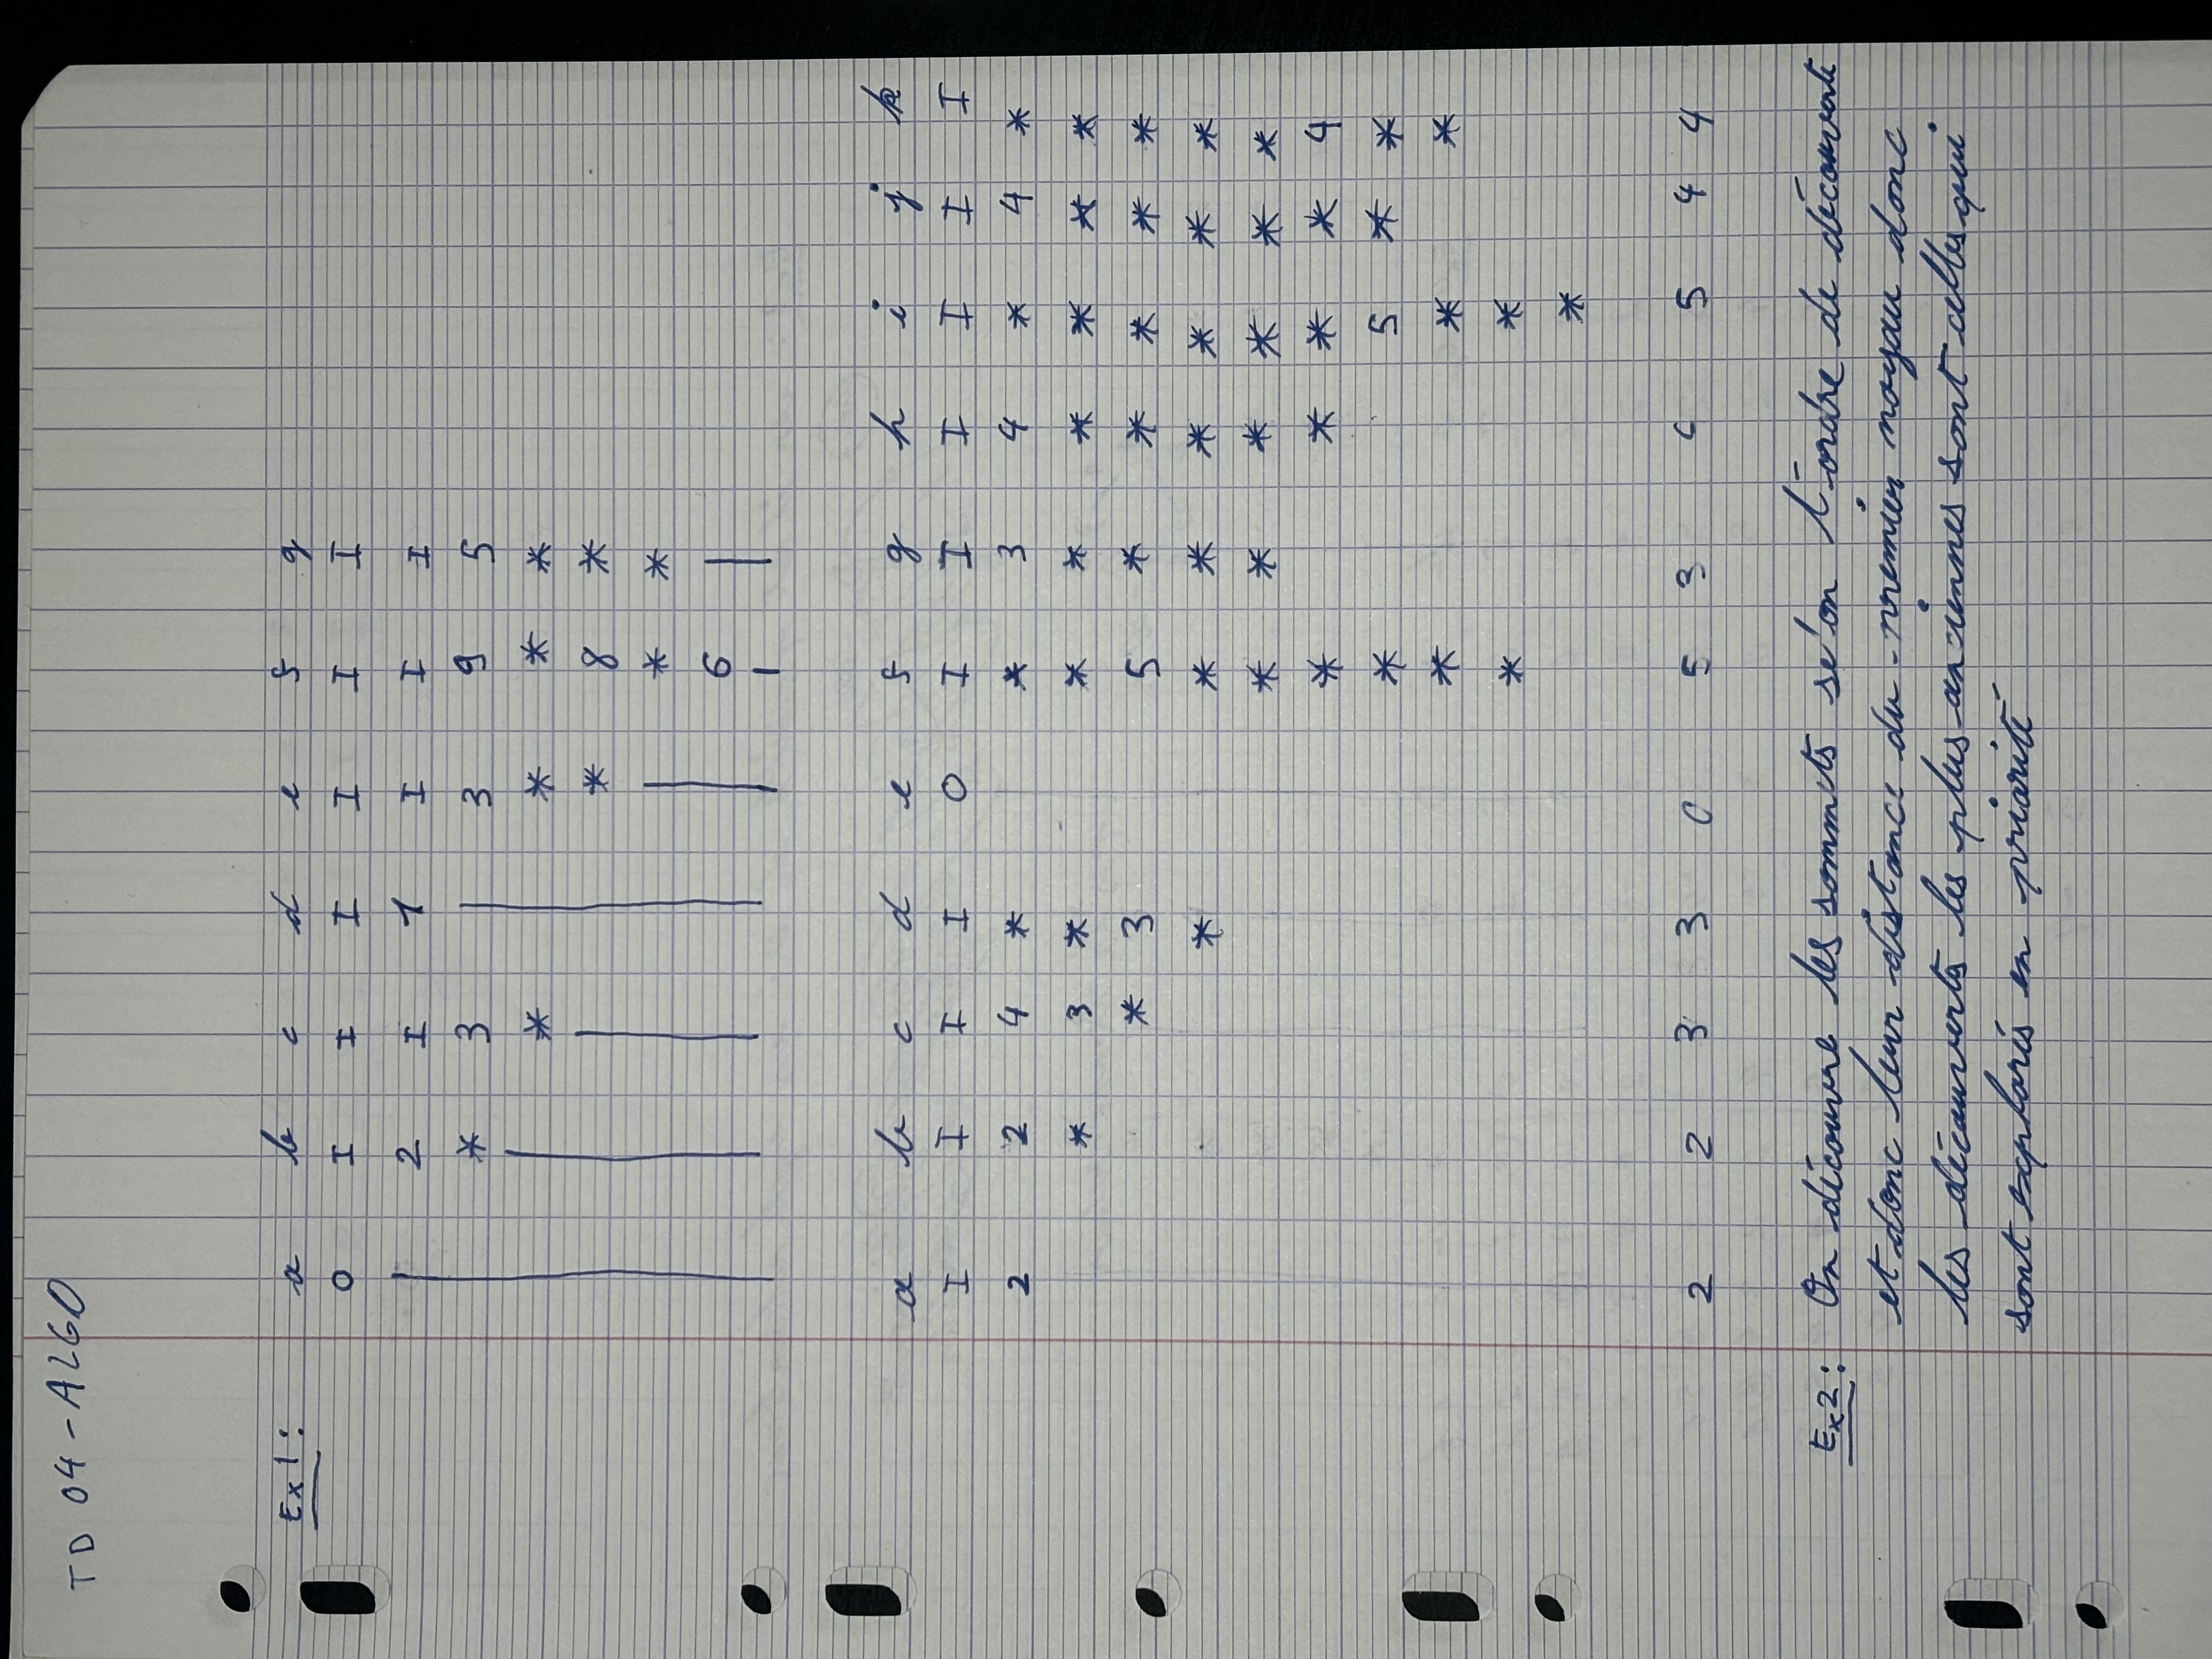 TD 04 - ALGO
Ex1: a b c d e f g
0 I I I I I I
| 2 I 1 I I I
* 3 | 3 9 5
| * * * *
| * 8 *
| * *
6 |
|
a b c d e f g h i j k
I I I I 0 I I I I I I
2 2 4 * * 3 4 * 4 *
* 3 * * * * * * *
* 3 5 * * * * *
* * * * * * *
* * * * * *
* * * * 4
* 5 * *
* * *
* *
*
2 2 3 3 0 5 3 5 4 4
Ex2: On découvre les sommets sélon l'ordre de découverte
et donc leur distance du premier noyau donc
les découverts les plus anciennes sont celles qui
sont explorés en priorité